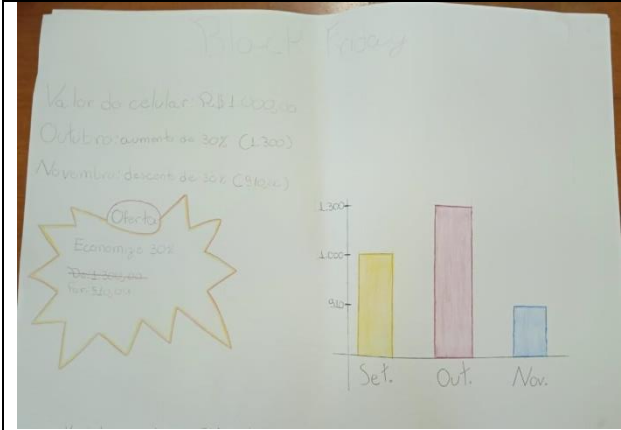 Black Friday
Valor do celular R$1.000,00
Outubro: aumento de 30% (1.300)
Novembro: descont de 30% (910,00)
Oferta
Economize 30%
De 1.300,00
Por: 910,00
1.300
1.000
910
Set. Out. Nov.